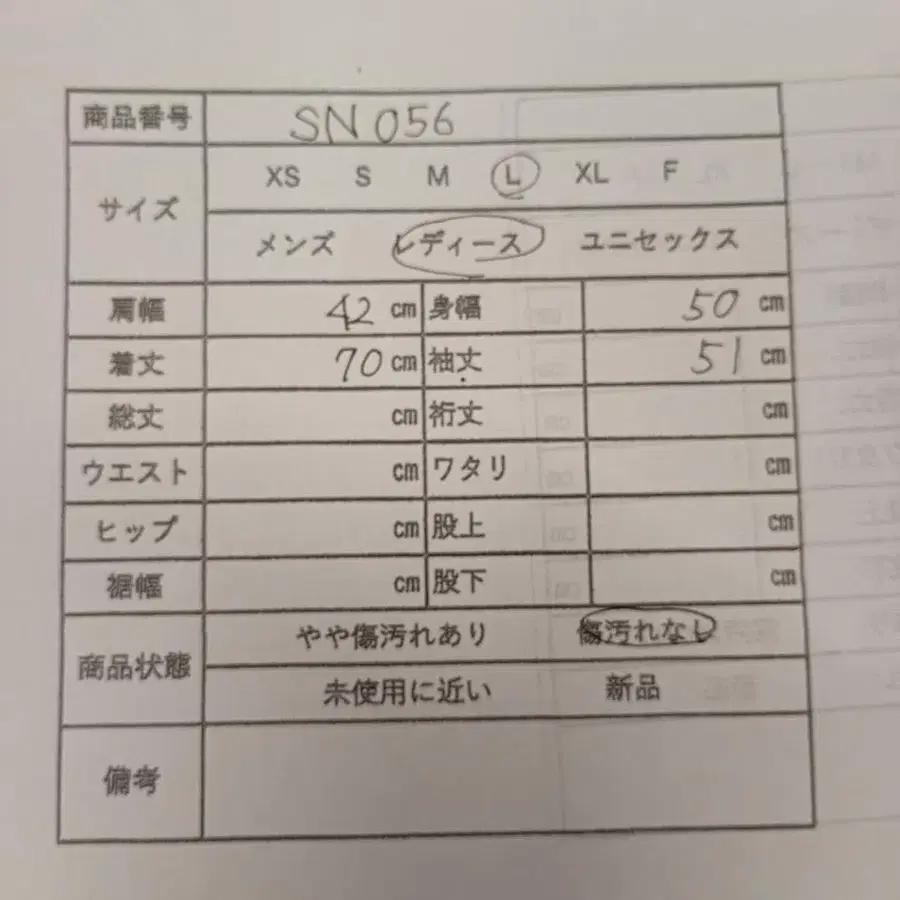 商品番号 SN056
サイズ XS S M L XL F
メンズ レディース ユニセックス
肩幅 42 cm 身幅 50 cm
着丈 70 cm 袖丈 51 cm
総丈 cm 裄丈 cm
ウエスト cm ワタリ cm
ヒップ cm 股上 cm
裾幅 cm 股下 cm
商品状態 やや傷汚れあり 傷汚れなし
未使用に近い 新品
備考